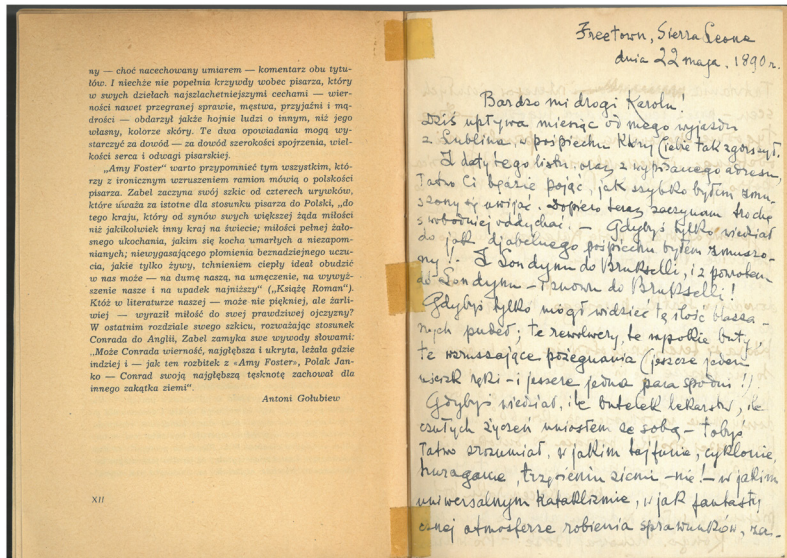 ny — choć nacechowany umiarem — komentarz obu tytu-
łów. I niechże nie popełnia krzywdy wobec pisarza, który
w swych dziełach najszlachetniejszymi cechami — wier-
ności nawet przegranej sprawie, męstwa, przyjaźni i mą-
drości — obdarzył jakże hojnie ludzi o innym, niż jego
własny, kolorze skóry. Te dwa opowiadania mogą wy-
starczyć za dowód — za dowód szerokości spojrzenia, wiel-
kości serca i odwagi pisarskiej.
„Amy Foster” warto przypomnieć tym wszystkim, któ-
rzy z ironicznym wzruszeniem ramion mówią o polskości
pisarza. Zabel zaczyna swój szkic od czterech urywków,
które uważa za istotne dla stosunku pisarza do Polski, „do
tego kraju, który od synów swych większej żąda miłości
niż jakikolwiek inny kraj na świecie; miłości pełnej żało-
snego ukochania, jakim się kocha umarłych a niezapom-
nianych; niewygasającego płomienia beznadziejnego uczu-
cia, jakie tylko żywy, tchnieniem ciepły ideał obudzić
w nas może — na dumę naszą, na umęczenie, na wywyż-
szenie nasze i na upadek najniższy” („Książę Roman”).
Któż w literaturze naszej — może nie piękniej, ale żarli-
wiej — wyraził miłość do swej prawdziwej ojczyzny?
W ostatnim rozdziale swego szkicu, rozważając stosunek
Conrada do Anglii, Zabel zamyka swe wywody słowami:
„Może Conrada wierność, najgłębsza i ukryta, leżała gdzie
indziej i — jak ten rozbitek z «Amy Foster», Polak Jan-
ko — Conrad swoją najgłębszą tęsknotę zachował dla
innego zakątka ziemi”.
Antoni Gołubiew
XII
Freetown, Sierra Leona
dnia 22 maja, 1890 r.
Bardzo mi drogi Karolu.
Dziś upływa miesiąc od mego wyjazdu
z Lublina w pośpiechu który Ciebie tak zgorszył.
Z daty tego listu, oraz z wypisanego adresu,
łatwo Ci będzie pojąć, jak szybko byłem zmu-
szony się uwijać. Dopiero teraz zaczynam trochę
swobodniej oddychać. — Gdybyś tylko wiedział
do jak djabelnego pośpiechu byłem zmuszo-
ny!. Z Londynu do Brukselli, i z powrotem
do Londynu — I znowu do Brukselli!
Gdybyś tylko mógł widzieć tą ilość blasza-
nych pudeł; te rewolwery, te wysokie buty,
te wzruszające pożegnania (jeszcze jeden
uścisk ręki — i jeszcze jedna para spodni!).
Gdybyś wiedział, ile butelek lekarstw, ile
czułych życzeń uniosłem ze sobą — tobyś
łatwo zrozumiał, w jakim tajfunie, cyklonie,
huraganie, trzęsieniu ziemi — nie! — w jakim
uniwersalnym kataklizmie, w jak fantasty
cznej atmosferze robienia sprawunków, za-